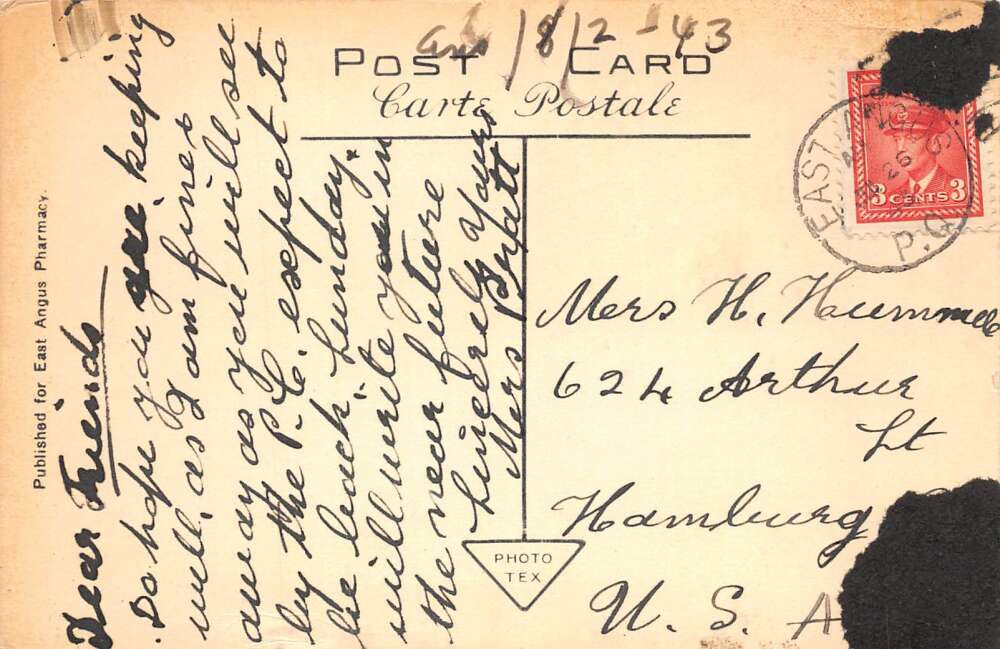 ans 18/2-43
POST CARD
Carte Postale
3 CENTS 3
EAST ANGUS
26
P.Q.
Published for East Angus Pharmacy.
Dear Friends
Do hope you are keeping
well, as I am fine &
away as you will see
by the P.C. expect to
be back Sunday.
will write you in
the near future
Sincerely Yours
Mers
PHOTO
TEX
Mers H. Hummel
624 Arthur
St
Hamburg
U. S. A